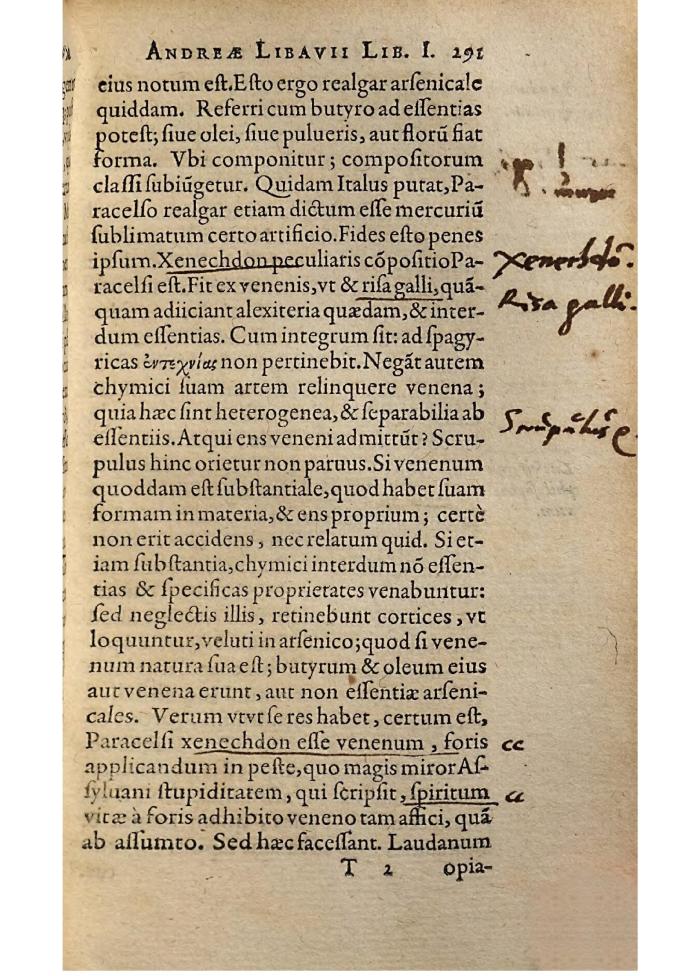 ANDREÆ LIBAVII LIB. I. 291
eius notum eſt.Eſto ergo realgar arſenicale
quiddam. Referri cum butyro ad eſſentias
poteſt; ſiue olei, ſiue pulueris, aut florū fiat
forma. Vbi componitur; compoſitorum
claſſi ſubiūgetur. Quidam Italus putat,Pa-
racelſo realgar etiam dictum eſſe mercuriū
ſublimatum certo artificio.Fides eſto penes
ipſum.Xenechdon peculiaris cōpoſitio Pa-
racelſi eſt.Fit ex venenis,vt & riſa galli,quā-
quam adiiciant alexiteria quædam,& inter-
dum eſſentias. Cum integrum ſit: ad ſpagy-
ricas ἐντεχνίας non pertinebit.Negāt autem
chymici ſuam artem relinquere venena;
quia hæc ſint heterogenea,& ſeparabilia ab
eſſentiis.Atqui ens veneni admittūt? Scru-
pulus hinc orietur non paruus.Si venenum
quoddam eſt ſubſtantiale,quod habet ſuam
formam in materia,& ens proprium; certè
non erit accidens, nec relatum quid. Si et-
iam ſubſtantia,chymici interdum nō eſſen-
tias & ſpecificas proprietates venabuntur:
ſed neglectis illis, retinebunt cortices, vt
loquuntur,veluti in arſenico;quod ſi vene-
num natura ſua eſt; butyrum & oleum eius
aut venena erunt, aut non eſſentiæ arſeni-
cales. Verum vtvt ſe res habet, certum eſt,
Paracelſi xenechdon eſſe venenum, foris
applicandum in peſte,quo magis miror Aſ-
ſyluani ſtupiditatem, qui ſcripſit, ſpiritum
vitæ à foris adhibito veneno tam affici, quā
ab aſſumto. Sed hæc faceſſant. Laudanum
T 2 opia-
Xenechdō.
Risa galli.
cc
cc